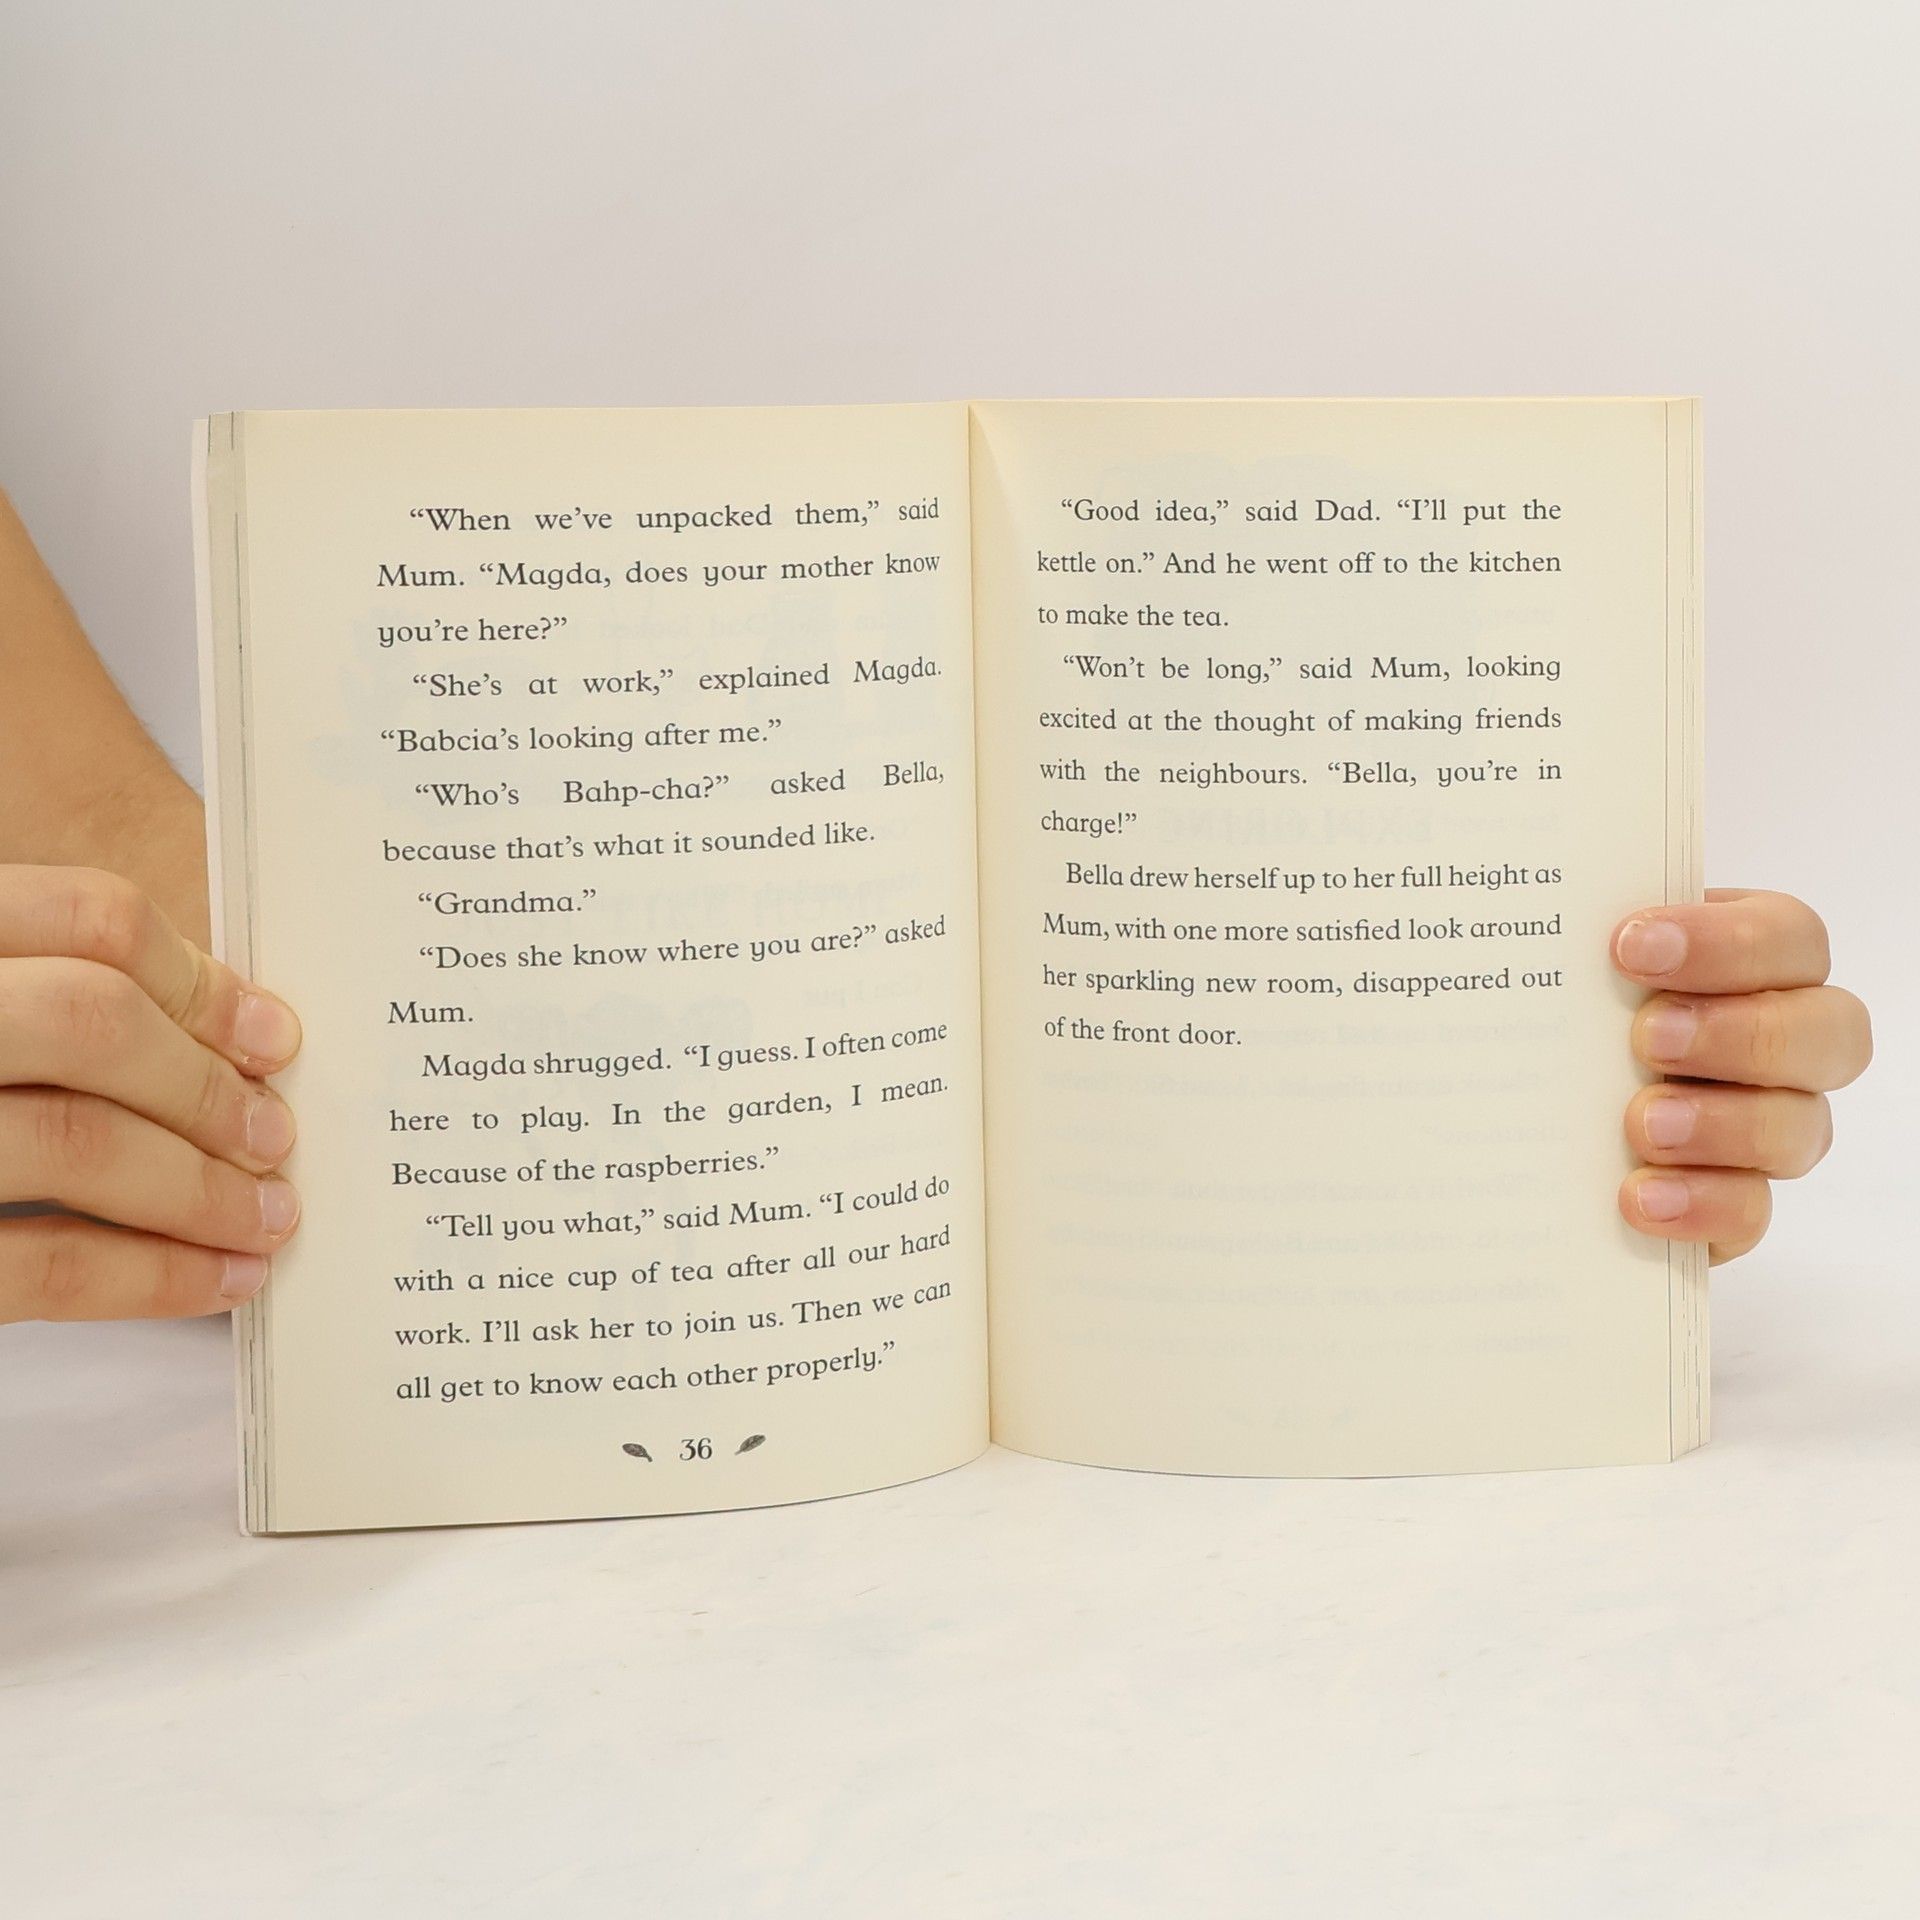 “When we’ve unpacked them,” said
Mum. “Magda, does your mother know
you’re here?”
“She’s at work,” explained Magda.
“Babcia’s looking after me.”
“Who’s Bahp-cha?” asked Bella,
because that’s what it sounded like.
“Grandma.”
“Does she know where you are?” asked
Mum.
Magda shrugged. “I guess. I often come
here to play. In the garden, I mean.
Because of the raspberries.”
“Tell you what,” said Mum. “I could do
with a nice cup of tea after all our hard
work. I’ll ask her to join us. Then we can
all get to know each other properly.”
36
“Good idea,” said Dad. “I’ll put the
kettle on.” And he went off to the kitchen
to make the tea.
“Won’t be long,” said Mum, looking
excited at the thought of making friends
with the neighbours. “Bella, you’re in
charge!”
Bella drew herself up to her full height as
Mum, with one more satisfied look around
her sparkling new room, disappeared out
of the front door.